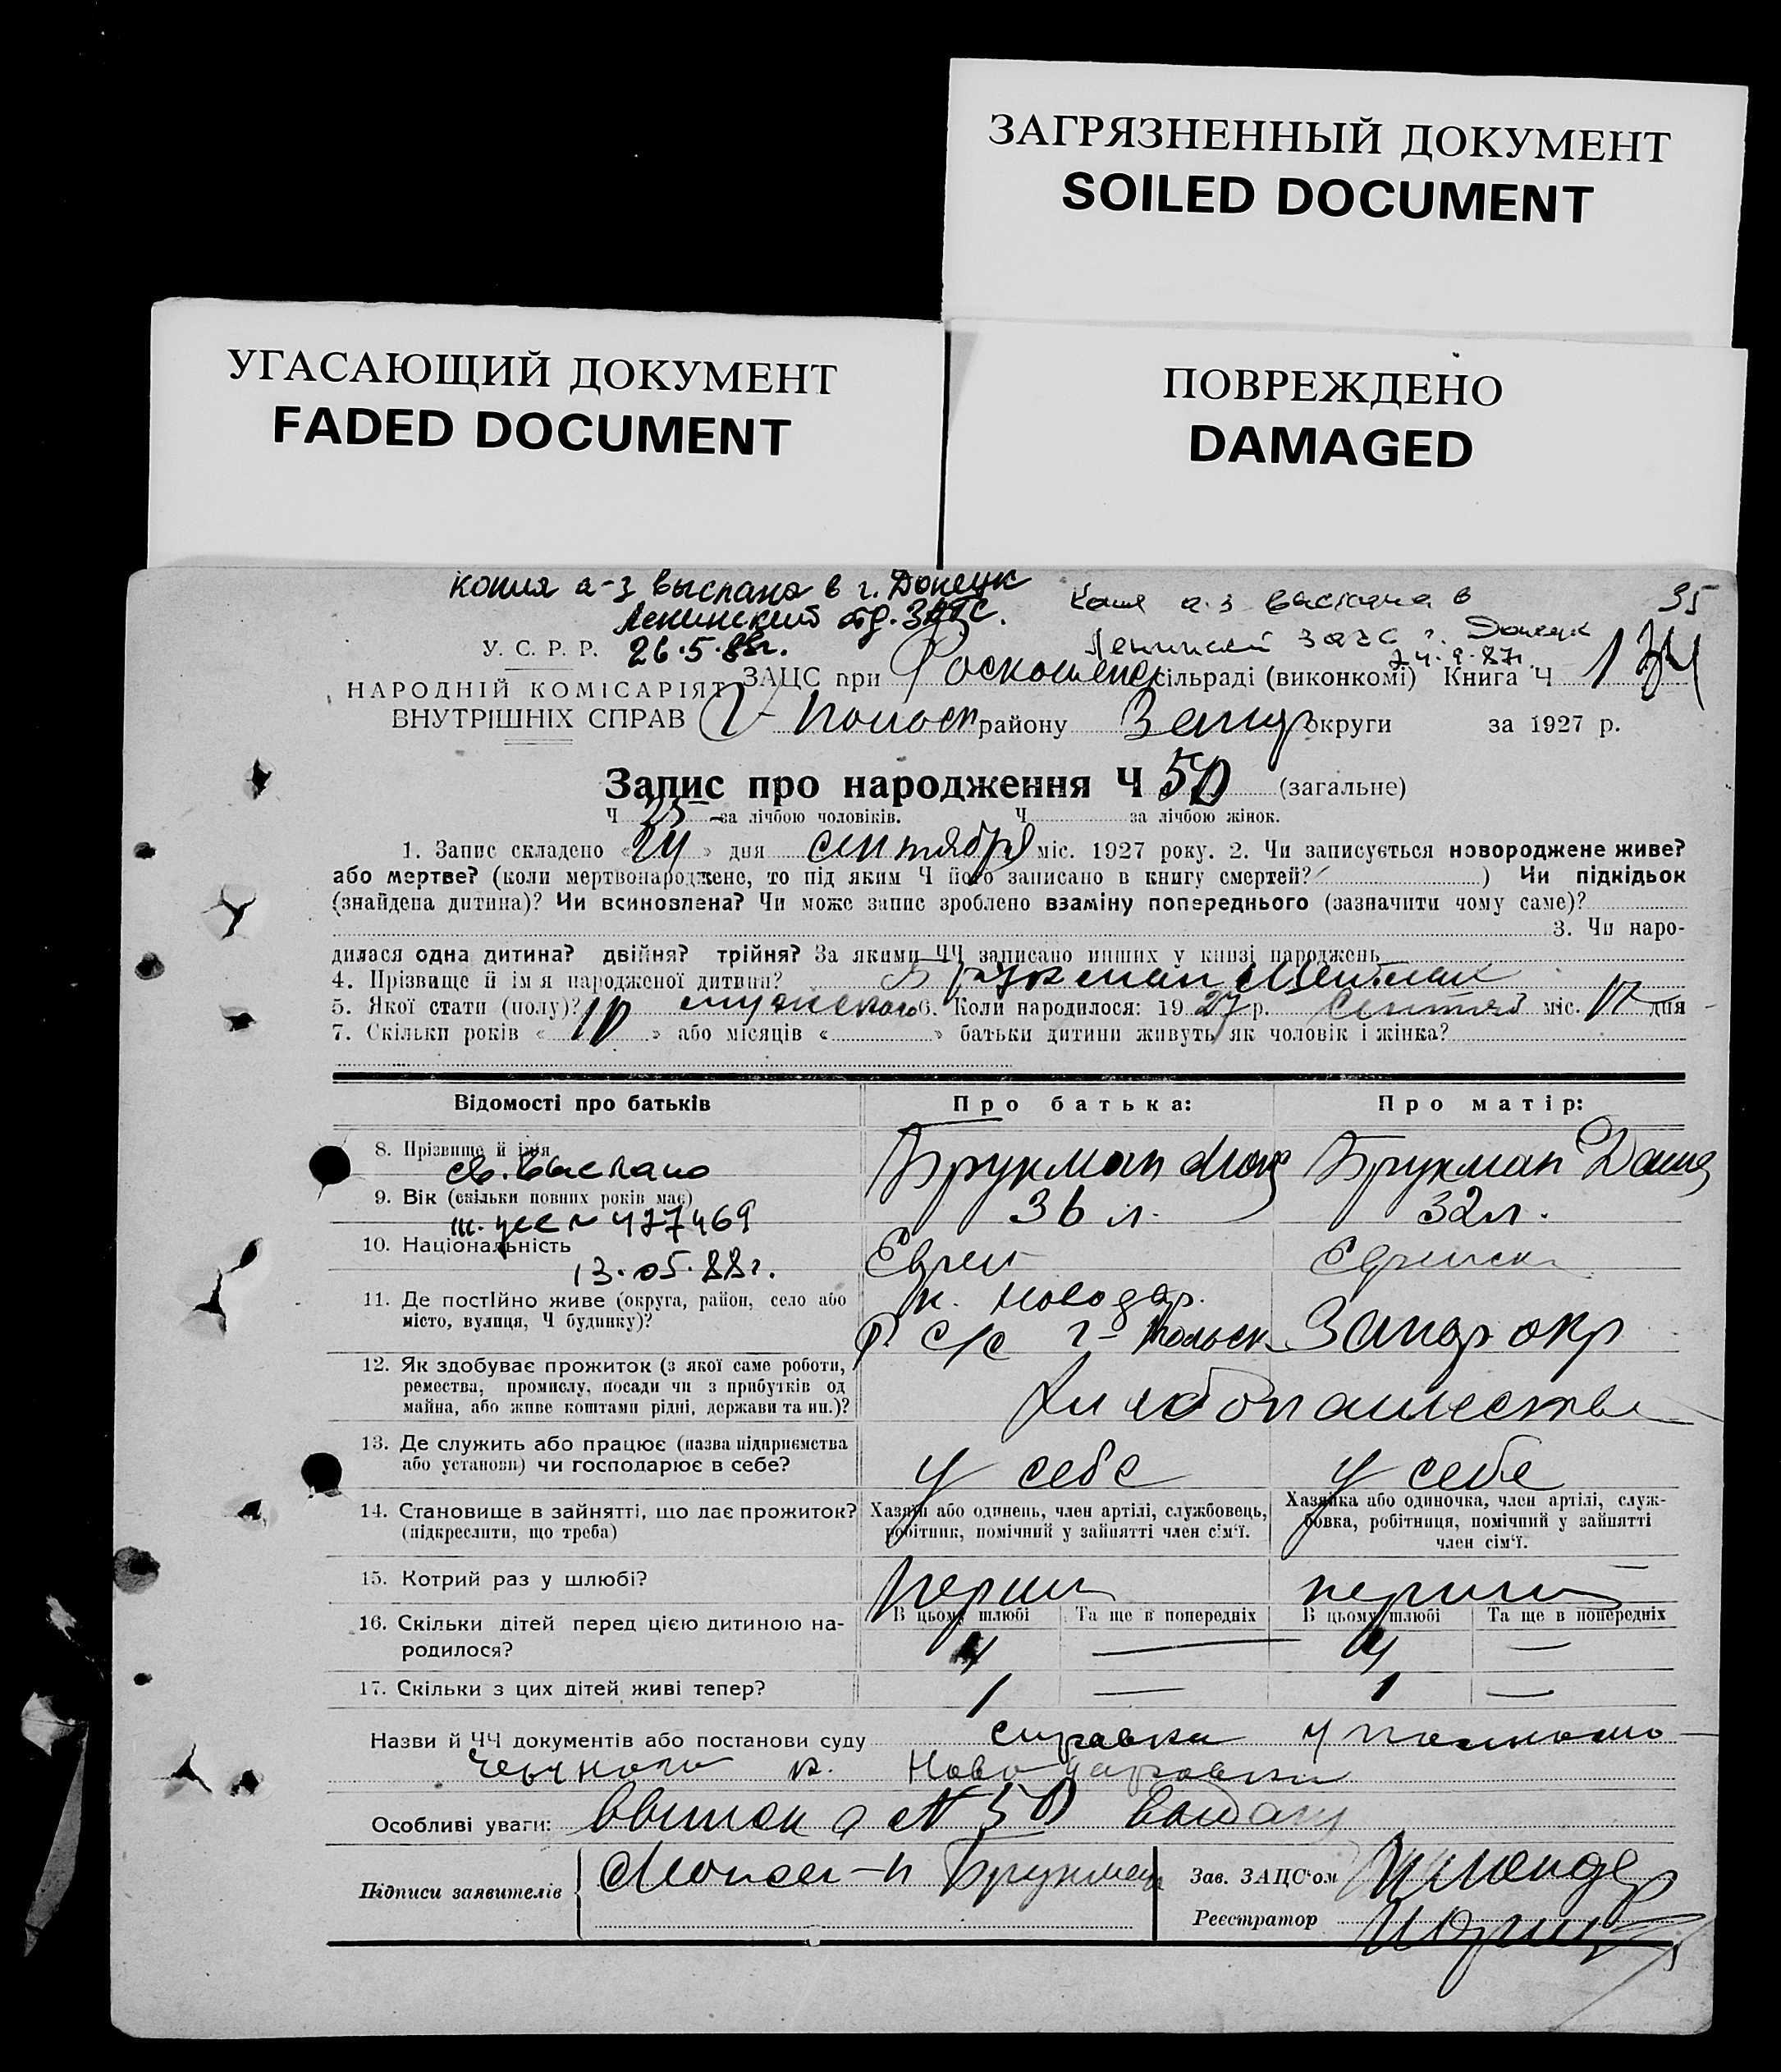 ЗАГРЯЗНЕННЫЙ ДОКУМЕНТ
SOILED DOCUMENT
УГАСАЮЩИЙ ДОКУМЕНТ
FADED DOCUMENT
ПОВРЕЖДЕНО
DAMAGED
копия а-з выслана в г. Донецк
Ленинский отд. ЗАГС.
26.5.88г.
Копия а-з выслана в
Ленинский загс г. Донецк
24.9.87г.
35
У. С. Р. Р.
НАРОДНІЙ КОМІСАРІЯТ
ВНУТРІШНІХ СПРАВ
ЗАЦС при Роскошенс сільраді (виконкомі) Книга Ч 1
району Запор округи за 1927 р.
Запис про народження Ч 50 (загальне)
Ч 25 за лічбою чоловіків. Ч за лічбою жінок.
1. Запис складено «24» дня сентября міс. 1927 року. 2. Чи записується новороджене живе?
або мертве? (коли мертвонароджене, то під яким Ч його записано в книгу смертей? ) Чи підкідьок
(знайдена дитина)? Чи всиновлена? Чи може запис зроблено взаміну попереднього (зазначити чому саме)?
3. Чи наро-
дилася одна дитина? двійня? трійня? За якими ЧЧ записано инших у книзі народжень
4. Прізвище й ім'я народженої дитини? Брукман
5. Якої стати (полу)? мужского 6. Коли народилося: 1927 р. Сентяб міс. 17 дня
7. Скільки років «10» або місяців « » батьки дитини живуть як чоловік і жінка?
Відомості про батьків Про батька: Про матір:
8. Прізвище й ім'я Брукман Брукман
св. выслано
9. Вік (скільки повних років має) 36 л. 32 л.
427469
10. Національність Еврей Еврейка
13.05.88г.
11. Де постійно живе (округа, район, село або
місто, вулиця, Ч будинку)?
Р. с/с Запор окр
12. Як здобуває прожиток (з якої саме роботи,
ремества, промислу, посади чи з прибутків од
майна, або живе коштами рідні, держави та ин.)?
13. Де служить або працює (назва підприємства
або установи) чи господарює в себе?
у себе у себе
14. Становище в зайнятті, що дає прожиток?
(підкреслити, що треба)
Хазяїн або одинець, член артілі, службовець,
робітник, помічний у зайнятті член сім'ї.
Хазяйка або одиночка, член артілі, служ-
бовка, робітниця, помічний у зайнятті
член сім'ї.
15. Котрий раз у шлюбі? перший перший
В цьому шлюбі Та ще в попередніх В цьому шлюбі Та ще в попередніх
16. Скільки дітей перед цією дитиною на-
родилося?
4 — 4 —
17. Скільки з цих дітей живі тепер? 1 — 1 —
Назви й ЧЧ документів або постанови суду справка
Особливі уваги: № 50
Підписи заявителів Брукман
Зав. ЗАЦС'ом
Реєстратор